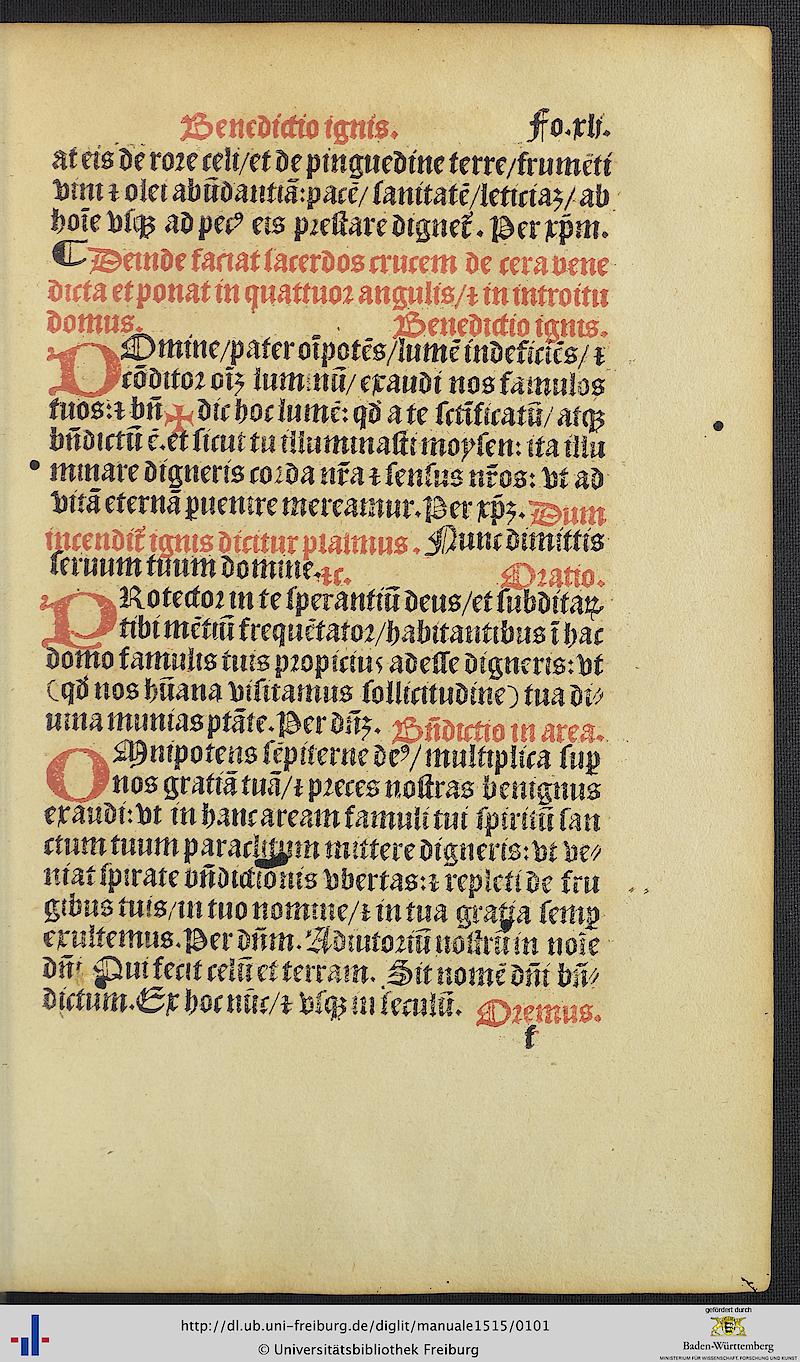 Benedictio ignis. Fo.xli.
at eis de rore celi/et de pinguedine terre/frumēti
vini ⁊ olei abūdantiā: pacē/ sanitatē/leticiaꝫ/ab
hoīe vsqꝫ ad pecꝰ eis prestare dignet̄. Per xp̄m.
¶ Deinde faciat sacerdos crucem de cera bene
dicta et ponat in quattuor angulis/⁊ in introitu
domus. Benedictio ignis.
DOmine/pater oīpotēs/lumē indeficiēs/⁊
cōditor oīꝫ luminū/exaudi nos famulos
tuos:⁊ bn̄ ✠ dic hoc lumē: qd̄ a te sctīficatū/atqꝫ
bn̄dictū ē.et sicut tu illuminasti moysen: ita illu
minare digneris corda nr̄a ⁊ sensus nr̄os: vt ad
vitā eternā ꝑuenire mereamur. Per xp̄ꝫ. Dum
incendit̄ ignis dicitur psalmus. Nunc dimittis
seruum tuum domine.⁊c. Oratio.
PRotector in te sperantiū deus/et subditaꝝ
tibi mētiū frequētator/habitantibus ī hac
domo famulis tuis propicius adesse digneris: vt
(qd̄ nos hūana visitamus sollicitudine) tua di⸗
uina munias ptāte. Per dn̄ꝫ. Bn̄dictio in area.
OMnipotens sēpiterne deꝰ/ multiplica suꝑ
nos gratiā tuā/⁊ preces nostras benignus
exaudi: vt in hanc aream famuli tui spiritū san
ctum tuum paraclitum mittere digneris: vt ve⸗
niat spirate bn̄dictionis vbertas:⁊ repleti de fru
gibus tuis/in tuo nomine/⁊ in tua gratia semꝑ
exultemus. Per dn̄m. Adiutoriū nostrū in noīe
dn̄i Qui fecit celū et terram. Sit nomē dn̄i bn̄⸗
dictum. Ex hoc nūc/⁊ vsqꝫ in seculū. Oremus.
f
http://dl.ub.uni-freiburg.de/diglit/manuale1515/0101
© Universitätsbibliothek Freiburg
gefördert durch
Baden-Württemberg
MINISTERIUM FÜR WISSENSCHAFT, FORSCHUNG UND KUNST